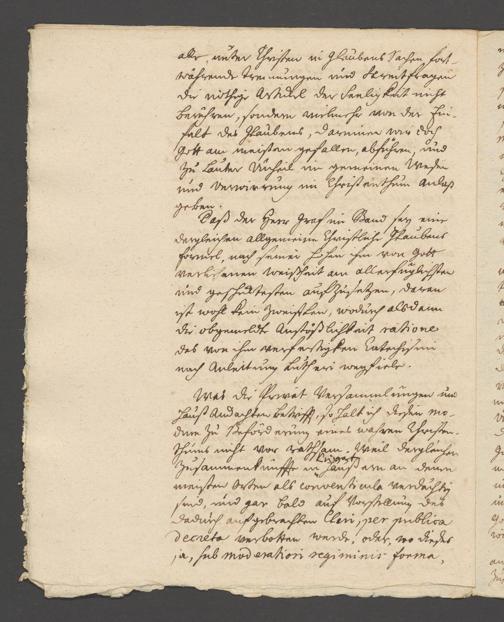 alle, unter Christen in Glaubens Sachen fort-
währende Trennungen und Streitfragen
die nöthige Articul der Seeligkeit nicht
berühren, sondern vielmehr von der Ein-
falt des Glaubens, darinnen wir doch
Gott am meisten gefallen, abführen, und
zu lauter Unheil im gemeinen Wesen
und Verwirrung im Christenthum Anlaß
geben.
Daß der Herr Graf im Stand sey eine
dergleichen allgemeine Christliche Glaubens
formul, nach seiner hohen ihm von Gott
verliehenen Weißheit am allerfüglichsten
und geschicktesten aufzusetzen, daran
ist wohl kein Zweiffel, wodurch alsdann
die obgemeldte Anstößlichkeit ratione
des von ihm verfertigten Catechismi
nach Anleitung Lutheri wegfiele.
Was die Privat Versammlungen und
Hauß Andachten betrifft, so halt ich diesen mo-
dum zu Beförderung eines wahren Christen-
thums nicht vor rathsam. Weil dergleichen
Zusammenkünffte in Häusern an denen
meisten Orten als conventicula verdächtig
sind, und gar bald auf Vorstellung des
dadurch aufgebrachten Cleri, per publica
decreta verbotten werde, oder, wo dieses
ja, sub moderatiori regiminis forma,